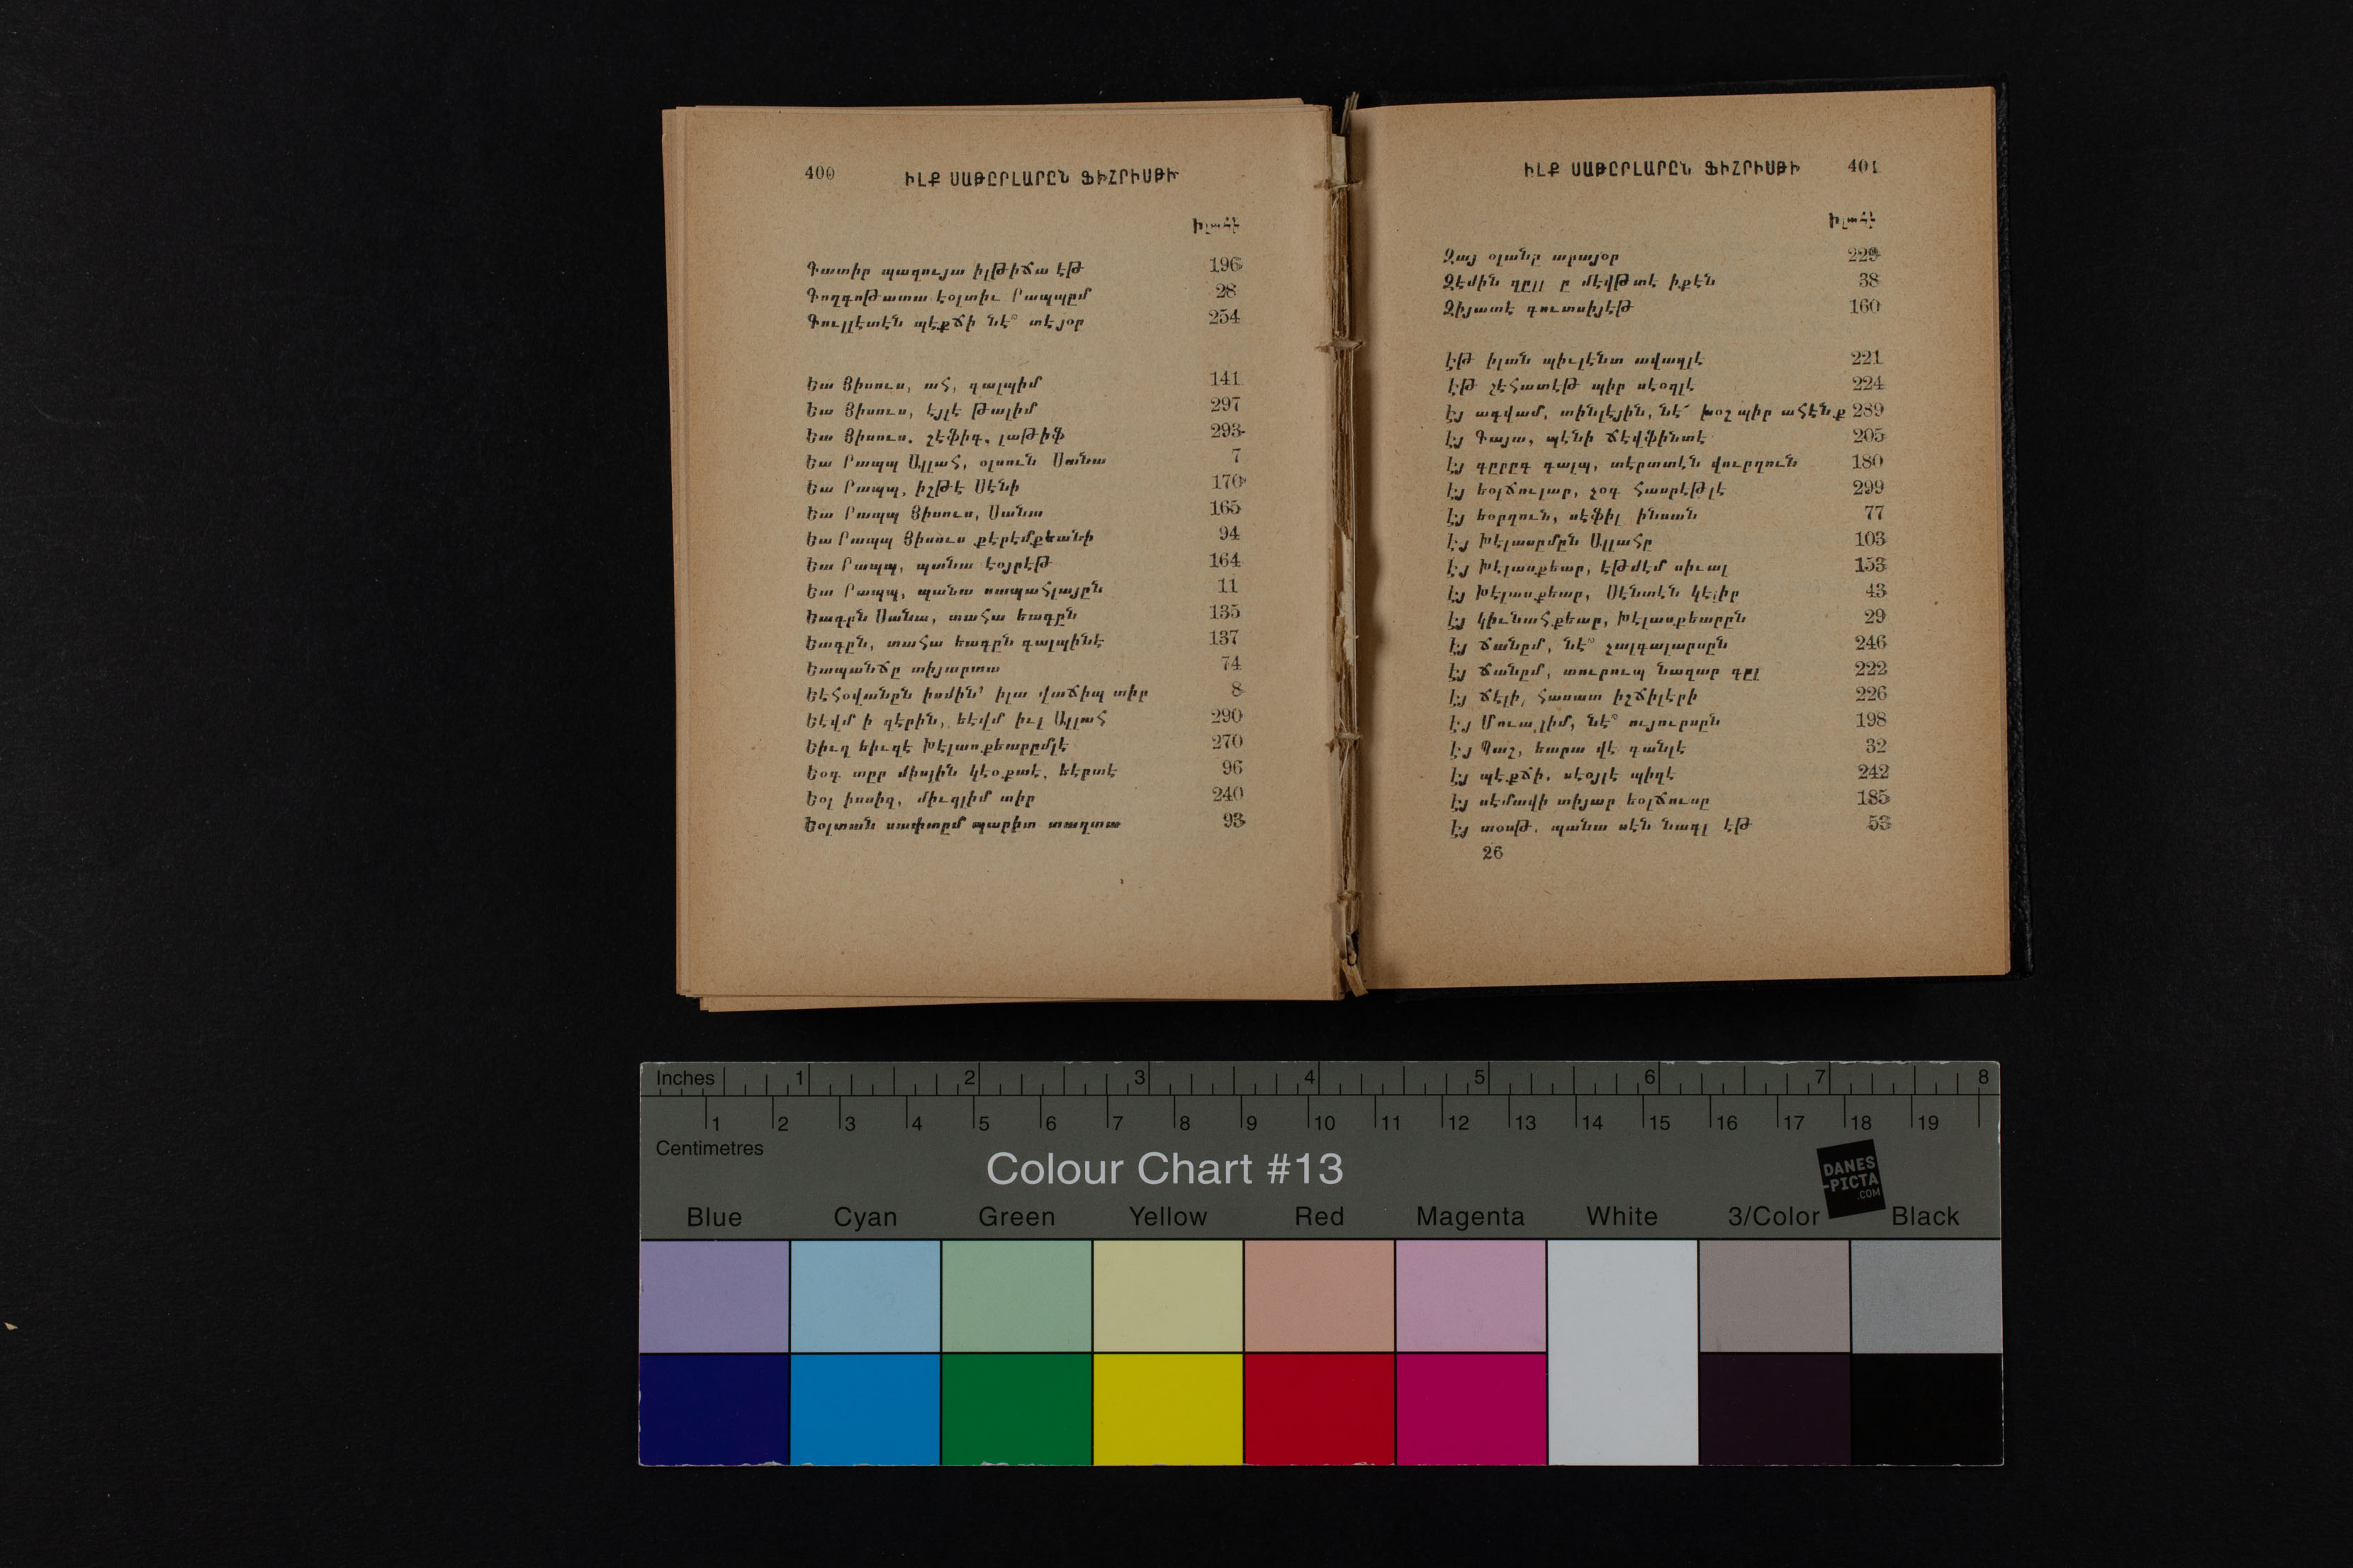 400 ԻԼՔ ՍԱԹԸՐԼԱՐԸՆ ՖԻՀՐԻՍԹԻ
Իլահէ
Գատիր պաղույա իլթիճա էթ 196
Գողգոթատա էօլտիւ Րապպըմ 28
Գուլլէտէն պէքճի նէ՞ տէյօր 254
Եա Յիսուս, ահ, գալպիմ 141
Եա Յիսուս, էյլէ թալիմ 297
Եա Յիսուս, շէֆիգ, լաթիֆ 293
Եա Րապպ Ալլահ, օլսուն Սանա 7
Եա Րապպ, իշթէ Սէնի 170
Եա Րապպ Յիսուս, Սանա 165
Եա Րապպ Յիսուս քէրէմքեանի 94
Եա Րապպ, պանա էօյրէթ 164
Եա Րապպ, պանա սապահլայըն 11
Եագըն Սանա, տահա եագըն 135
Եագըն, տահա եագըն գալպինէ 137
Եապանճը տիյարտա 74
Եէհօվանըն իսմին՚ իլա վաճիպ տիր 8
Եէվմ ի դէրին, եէվմ իւլ Ալլահ 290
Եիւզ եիւզէ Խէլասքեարըմլէ 270
Եօգ տըր միսլին կէօքտէ, եէրտէ 96
Եօլ իսսիզ, միւզլիմ տիր 240
Եօլտան սափտըմ պարիտ տաղտա 93
ԻԼՔ ՍԱԹԸՐԼԱՐԸՆ ՖԻՀՐԻՍԹԻ 401
Իլահէ
Զայ օլանը արայօր 229
Զէմին ղըլլ ը մէվթտէ իքէն 38
Զիյատէ գուտսիյէթ 160
Էթ իլան պիւլէնտ ավազլէ 221
Էթ շէհատէթ պիր սէօզլէ 224
Էյ ագվամ, տինլէյին, նէ՜ խօշ պիր ահէնք 289
Էյ Գայա, պէնի ճէվֆինտէ 205
Էյ գըրըգ գալպ, տէրտտէն վուրղուն 180
Էյ եօլճուլար, չօգ հասրէթլէ 299
Էյ եօրղուն, սէֆիլ ինսան 77
Էյ Խէլասըմըն Ալլահը 103
Էյ Խէլասքեար, էթմէմ սիւալ 153
Էյ Խէլասքեար, Սէնտէն կէլիր 43
Էյ կիւնահքեար, Խէլասքեարըն 29
Էյ ճանըմ, նէ՞ չալգալարսըն 246
Էյ ճանըմ, տուրուպ նազար գըլ 222
Էյ ճէլի, հասատ իշճիլէրի 226
Էյ Մուալլիմ, նէ՞ ույուրսըն 198
Էյ Պաշ, եարա վէ գանլէ 32
Էյ պէքճի, սէօյլէ պիզէ 242
Էյ սէմավի տիյար եօլճուսը 185
Էյ տօսթ, պանա սէն նագլ էթ 53
26
Inches 1 2 3 4 5 6 7 8
1 2 3 4 5 6 7 8 9 10 11 12 13 14 15 16 17 18 19
Centimetres
Colour Chart #13
DANES
-PICTA
.COM
Blue Cyan Green Yellow Red Magenta White 3/Color Black